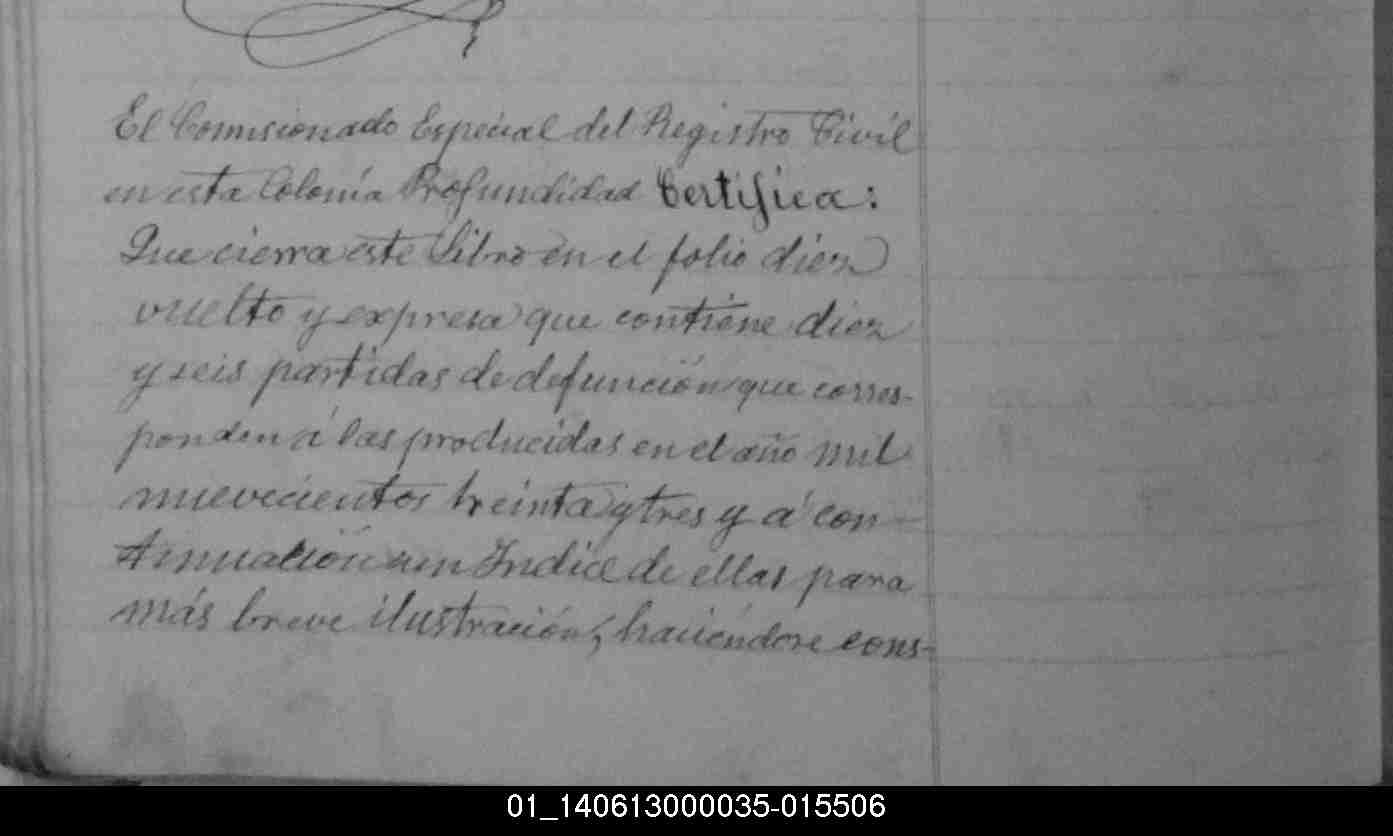 El Comisionado Especial del Registro Civil
en esta Colonia Profundidad Certifica:
Que cierra este Libro en el folio diez
vuelto y expresa que contiene diez
y seis partidas de defunción que corres-
ponden á las producidas en el año mil
nuevecientos treinta y tres y á con-
tinuación un Indice de ellas para
más breve ilustración, haciéndose cons-
01_140613000035-015506